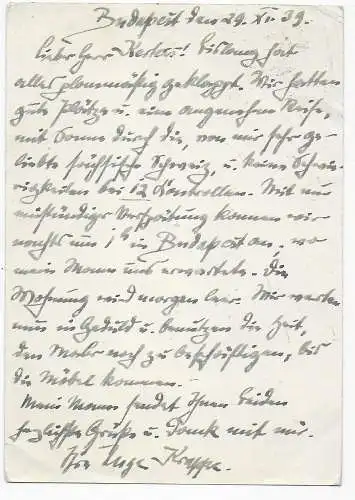 Budapest den 29. XI. 39.
Lieber Herr Kertes! Bislang hat
alles planmäßig geklappt. Wir hatten
gute Plätze u. eine angenehme Reise,
mit Sonne durch die, von mir sehr ge-
liebte sächsische Schweiz, u. keine Schwie-
rigkeiten bei 12 Kontrollen. Mit nur
einstündiger Verspätung kamen wir
nachts um 1 h in Budapest an, wo
mein Mann uns erwartete. Die
Wohnung wird morgen leer. Wir warten
nun in Geduld u. benutzen die Zeit,
den Maler noch zu beschäftigen, bis
die Möbel kommen.
Mein Mann sendet Ihnen beiden
herzlichste Grüße u. Dank mit mir.
Ihre Inge